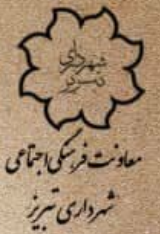 شهرداری
تبریز
معاونت فرهنگی اجتماعی
شهرداری تبریز